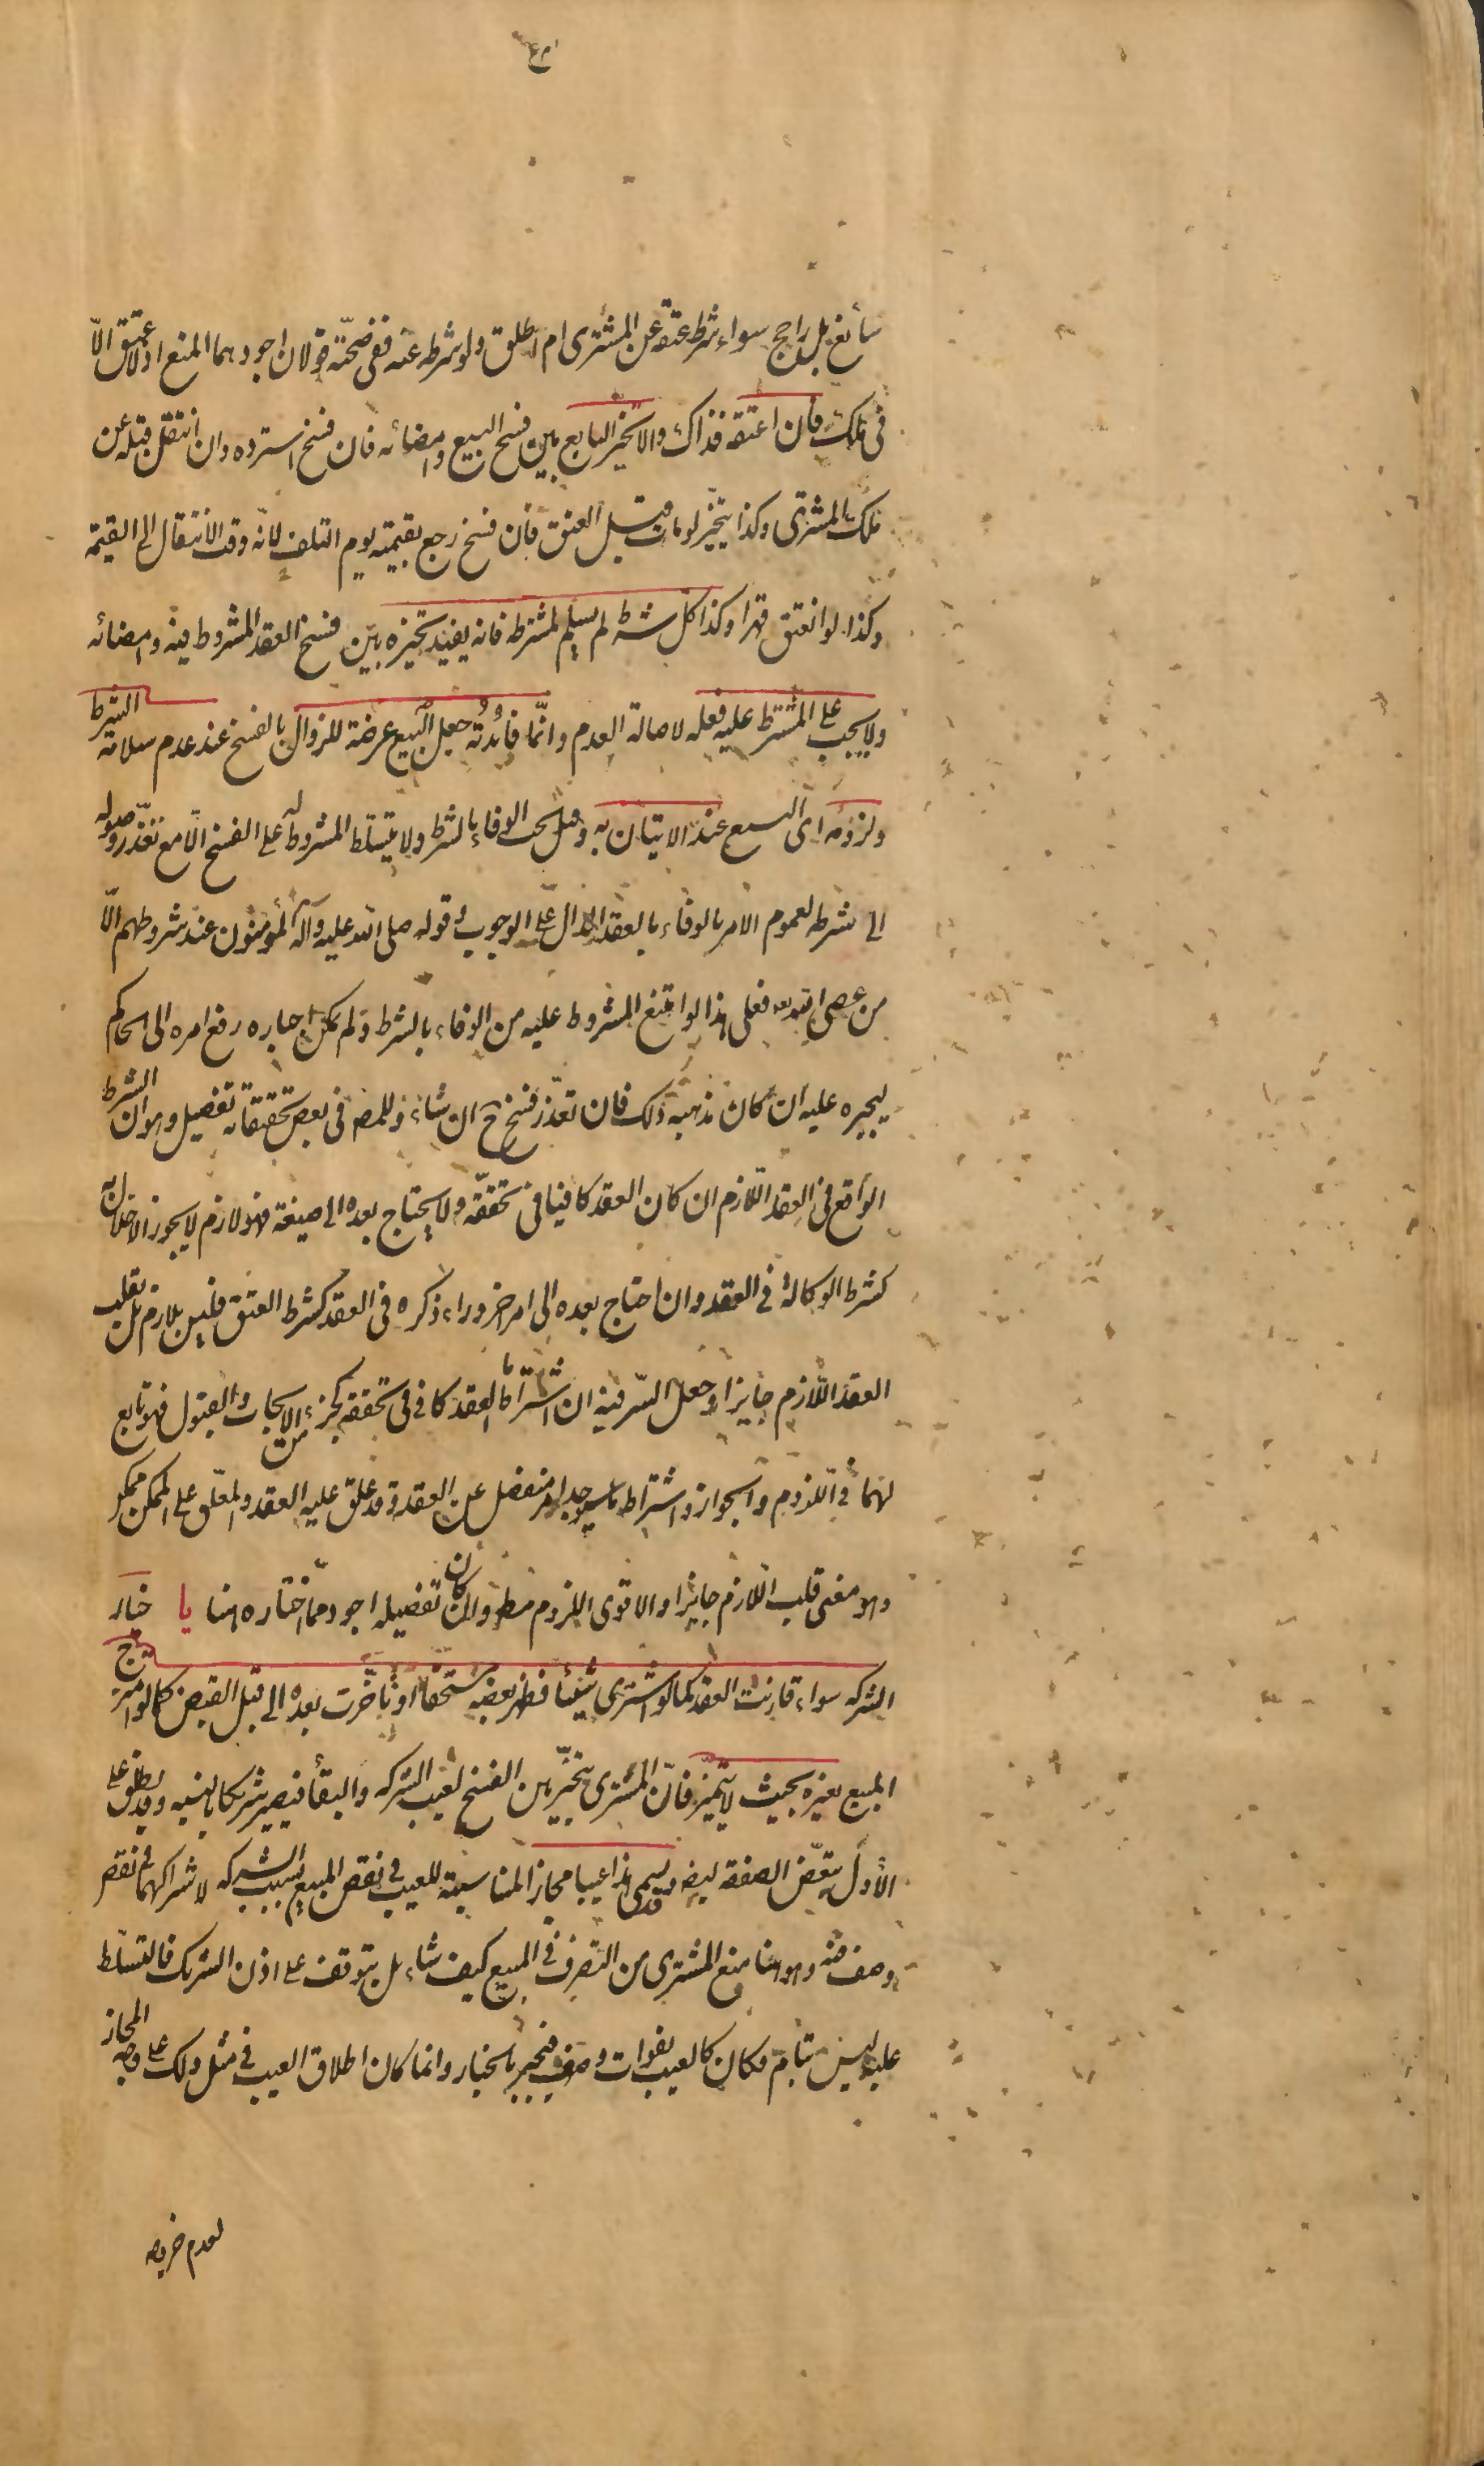 سائغ بل راجح سواء شرط عتقه عن المشتری ام اطلق ولو شرطه عنه ففی صحّته قولان اجودهما المنع اذ لا عتق الّا
فی ملک فان اعتقه فذاک والا تخیّر البایع بین فسخ البیع و امضائه فان فسخ استرده وان انتقل قبله عن
ملک المشتری وکذا یتخیّر لو مات قبل العتق فان فسخ رجع بقیمته یوم التلف لانّه وقت الانتقال الی القیمة
وکذا لو انعتق قهرا وکذا کل شرط لم یسلم لمشترطه فانه یفید تخیره بین فسخ العقد المشروط فیه و امضائه
ولا یجب علی المشترط علیه فعله لاصالة العدم وانّما فائدته جعل البیع عرضة للزوال بالفسخ عند عدم سلامة الشرط
ولزومه ای البیع عند الاتیان به وقیل یجب الوفاء بالشرط ولا یتسلط المشروط له علی الفسخ الّا مع تعذّر وصوله
الی شرطه لعموم الامر بالوفاء بالعقد الدال علی الوجوب و قوله صلی الله علیه وآله المؤمنون عند شروطهم الّا
من عصی الله فعلی هذا لو امتنع المشروط علیه من الوفاء بالشرط و لم یمکن اجباره رفع امره الی الحاکم
لیجبره علیه ان کان مذهبه ذلک فان تعذّر فسخ ح ان شاء وللمص فی بعض تحقیقاته تفصیل وهو ان الشرط
الواقع فی العقد اللازم ان کان العقد کافیا فی تحققه ولا یحتاج بعده الی صیغة فهو لازم لا یجوز الاخلال به
کشرط الوکالة فی العقد وان احتاج بعده الی امر اخر وراء ذکره فی العقد کشرط العتق فلیس بلازم بل یقلب
العقد اللازم جایزا وجعل السّر فیه ان اشتراط ما العقد کاف فی تحققه کجزء من الایجاب والقبول فهو تابع
لهما فی اللزوم والجواز واشتراط ما سیوجد امر منفصل عن العقد وقد علق علیه العقد والمعلّق علی الممکن ممکن
وهو معنی قلب اللازم جایزا والاقوی اللزوم مط وان کان تفصیله اجود ممّا اختاره هنا یا خیار
الشرکه سواء قارنت العقد کما لو اشتری شیئا فظهر بعضه مستحقا او تاخّرت بعده الی قبل القبض کما لو امتزج
المبیع بغیره بحیث لا یتمیّز فانّ المشتری یتخیّر بین الفسخ لعیب الشرکه والبقاء فیصیر شریکا بالنسبه وقد یطلق علی
الاول تبعّض الصفقه ایضه وقد یسمی هذا عیبا مجازا لمناسبته للعیب فی نقص المبیع بسبب الشرکه لاشتراکهما فی نقص
وصف فیه وهو هنا منع المشتری من التصرف فی المبیع کیف شاء بل یتوقف علی اذن الشریک فالتسلّط
علیه لیس بتام فکان کالعیب بفوات وصف فیجبر بالخیار وانما کان اطلاق العیب فی مثل ذلک علی وجه المجاز
لعدم خروجه